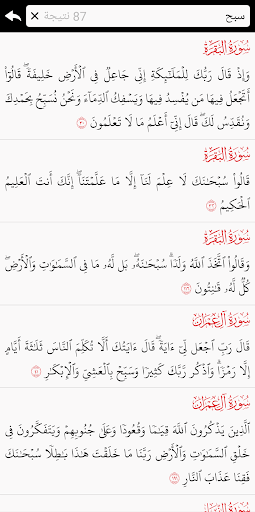 سبح
87 نتيجة ×
سُورَةُ البَقَرَةِ
وَإِذْ قَالَ رَبُّكَ لِلْمَلَٰٓئِكَةِ إِنِّى جَاعِلٌ فِى ٱلْأَرْضِ خَلِيفَةً ۖ قَالُوٓا۟
أَتَجْعَلُ فِيهَا مَن يُفْسِدُ فِيهَا وَيَسْفِكُ ٱلدِّمَآءَ وَنَحْنُ نُسَبِّحُ بِحَمْدِكَ
وَنُقَدِّسُ لَكَ ۖ قَالَ إِنِّىٓ أَعْلَمُ مَا لَا تَعْلَمُونَ ٣٠
سُورَةُ البَقَرَةِ
قَالُوا۟ سُبْحَٰنَكَ لَا عِلْمَ لَنَآ إِلَّا مَا عَلَّمْتَنَآ ۖ إِنَّكَ أَنتَ ٱلْعَلِيمُ
ٱلْحَكِيمُ ٣٢
سُورَةُ البَقَرَةِ
وَقَالُوا۟ ٱتَّخَذَ ٱللَّهُ وَلَدًا ۗ سُبْحَٰنَهُۥ ۖ بَل لَّهُۥ مَا فِى ٱلسَّمَٰوَٰتِ وَٱلْأَرْضِ ۖ
كُلٌّ لَّهُۥ قَٰنِتُونَ ١١٦
سُورَةُ آلِ عِمۡرَانَ
قَالَ رَبِّ ٱجْعَل لِّىٓ ءَايَةً ۖ قَالَ ءَايَتُكَ أَلَّا تُكَلِّمَ ٱلنَّاسَ ثَلَٰثَةَ أَيَّامٍ
إِلَّا رَمْزًا ۗ وَٱذْكُر رَّبَّكَ كَثِيرًا وَسَبِّحْ بِٱلْعَشِىِّ وَٱلْإِبْكَٰرِ ٤١
سُورَةُ آلِ عِمۡرَانَ
ٱلَّذِينَ يَذْكُرُونَ ٱللَّهَ قِيَٰمًا وَقُعُودًا وَعَلَىٰ جُنُوبِهِمْ وَيَتَفَكَّرُونَ فِى
خَلْقِ ٱلسَّمَٰوَٰتِ وَٱلْأَرْضِ رَبَّنَا مَا خَلَقْتَ هَٰذَا بَٰطِلًا سُبْحَٰنَكَ
فَقِنَا عَذَابَ ٱلنَّارِ ١٩١